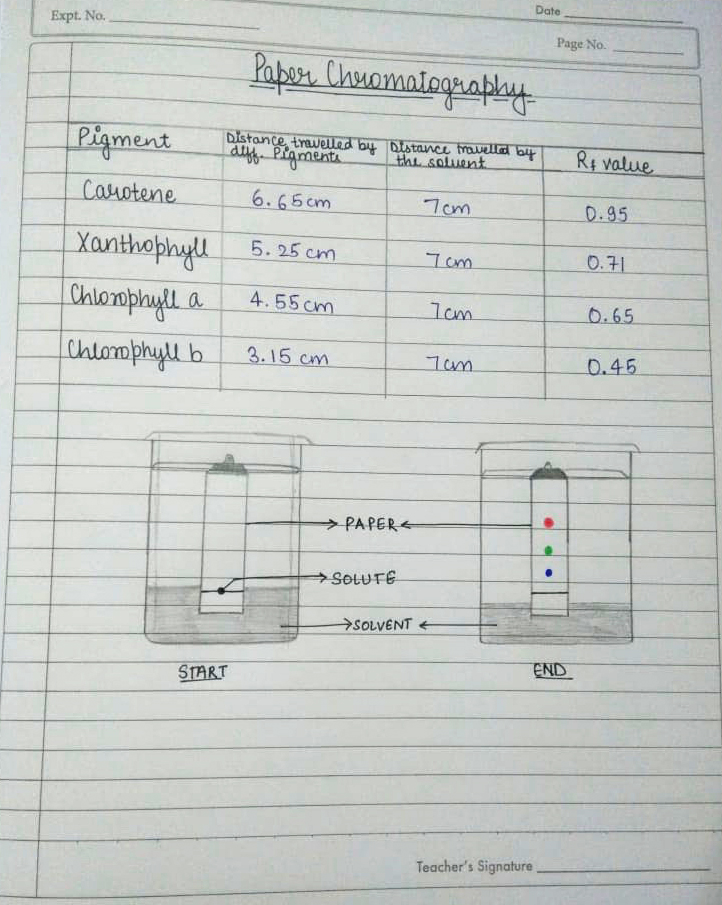 Expt. No.
Date
Page No.
Paper Chromatography
Pigment
Distance travelled by
diff. Pigments
Distance travelled by
the solvent
Rf value
Carotene 6.65cm 7cm 0.95
Xanthophyll 5.25 cm 7cm 0.71
Chlorophyll a 4.55cm 7cm 0.65
Chlorophyll b 3.15 cm 7cm 0.45
PAPER
SOLUTE
SOLVENT
START END
Teacher's Signature